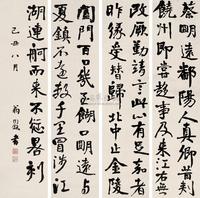 蔡明遠鄱陽人真卿昔刺
饒州即嘗趨事及來江右無
改厥勤靖言此心有足嘉者一
昨緣受替歸北中止金陵
闔門百口幾至餬口明遠與
夏鎮不遠數千里冒涉江
湖連舸而來不愆晷刻
己丑八月
翁同龢書